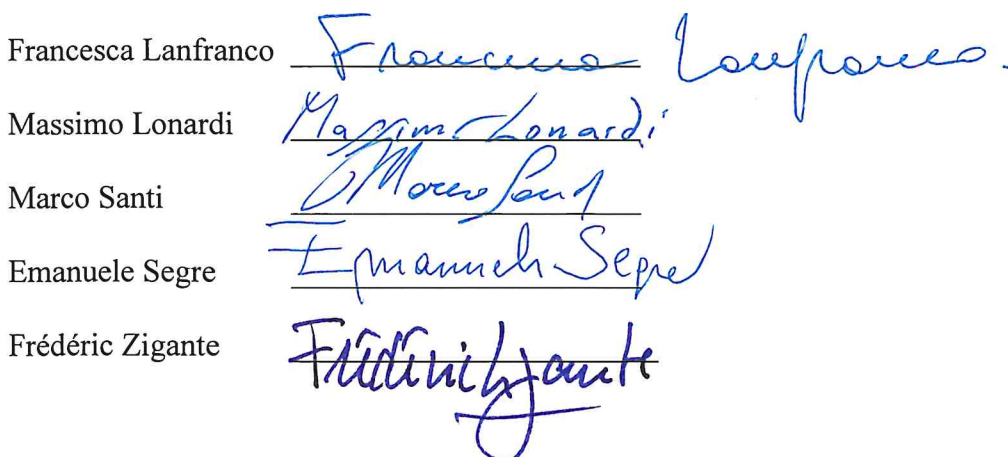 Francesca Lanfranco Francesca Lanfranco.
Massimo Lonardi Massimo Lonardi
Marco Santi Marco Santi
Emanuele Segre Emanuele Segre
Frédéric Zigante Frédéric Zigante